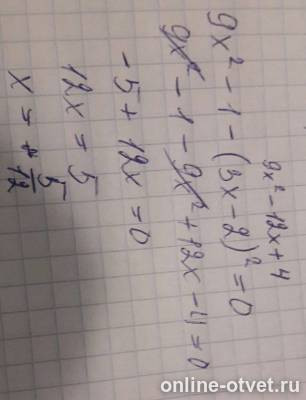 9x² - 12x + 4
9x² - 1 - (3x - 2)² = 0
9x² - 1 - 9x² + 12x - 4 = 0
-5 + 12x = 0
12x = 5
x = 5/12
online-otvet.ru